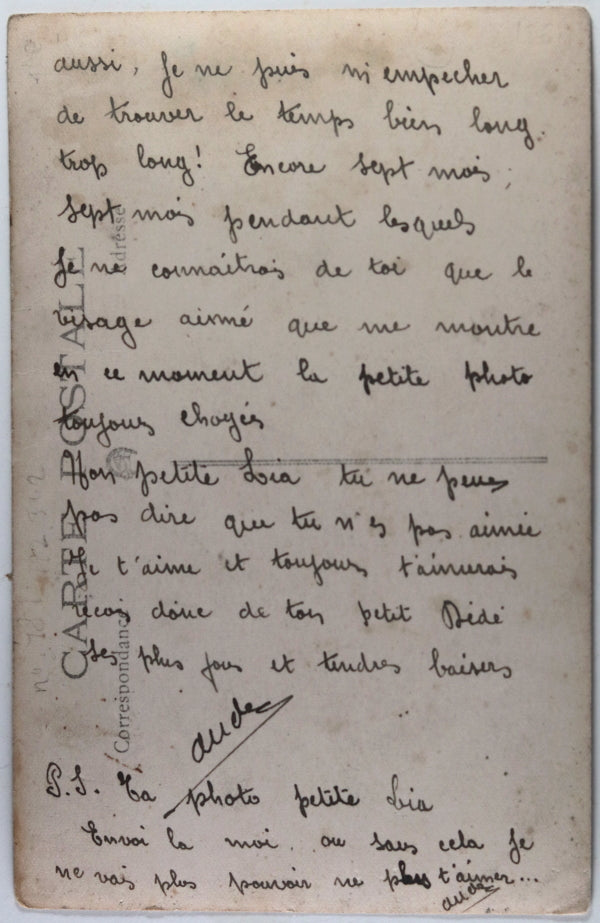 aussi, Je ne puis m'empecher
de trouver le temps bien long,
trop long! Encore sept mois,
Sept mois pendant lesquels
Je ne connaitrais de toi que le
visage aimé que me montre
en ce moment la petite photo
toujours choyée
Mon petite Lia tu ne peues
pas dire que tu n'es pas aimée
Je t'aime et toujours t'aimerais
recois donc de ton petit Dédé
Ses plus fous et tendres baisers
P.S. Ta photo petite Lia
Envoi la moi ou sans cela Je
ne vais plus pouvoir ne plus t'aimer...
CARTE POSTALE
Correspondance
Adresse